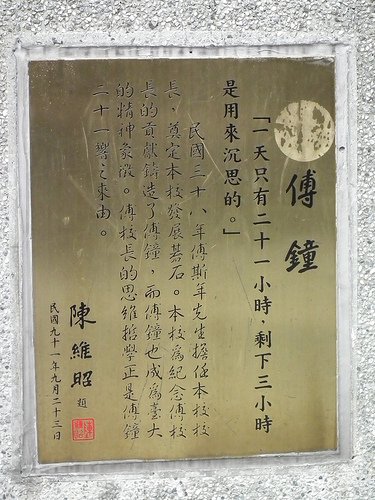 傅鐘
「一天只有二十一小時，剩下三小時
是用來沉思的。」
民國三十八年傅斯年先生擔任本校校
長，奠定本校發展基石。本校為紀念傅校
長的貢獻鑄造了傅鐘，而傅鐘也成為臺大
的精神象徵。傅校長的思維哲學正是傅鐘
二十一響之來由。
陳維昭
民國九十一年九月二十三日